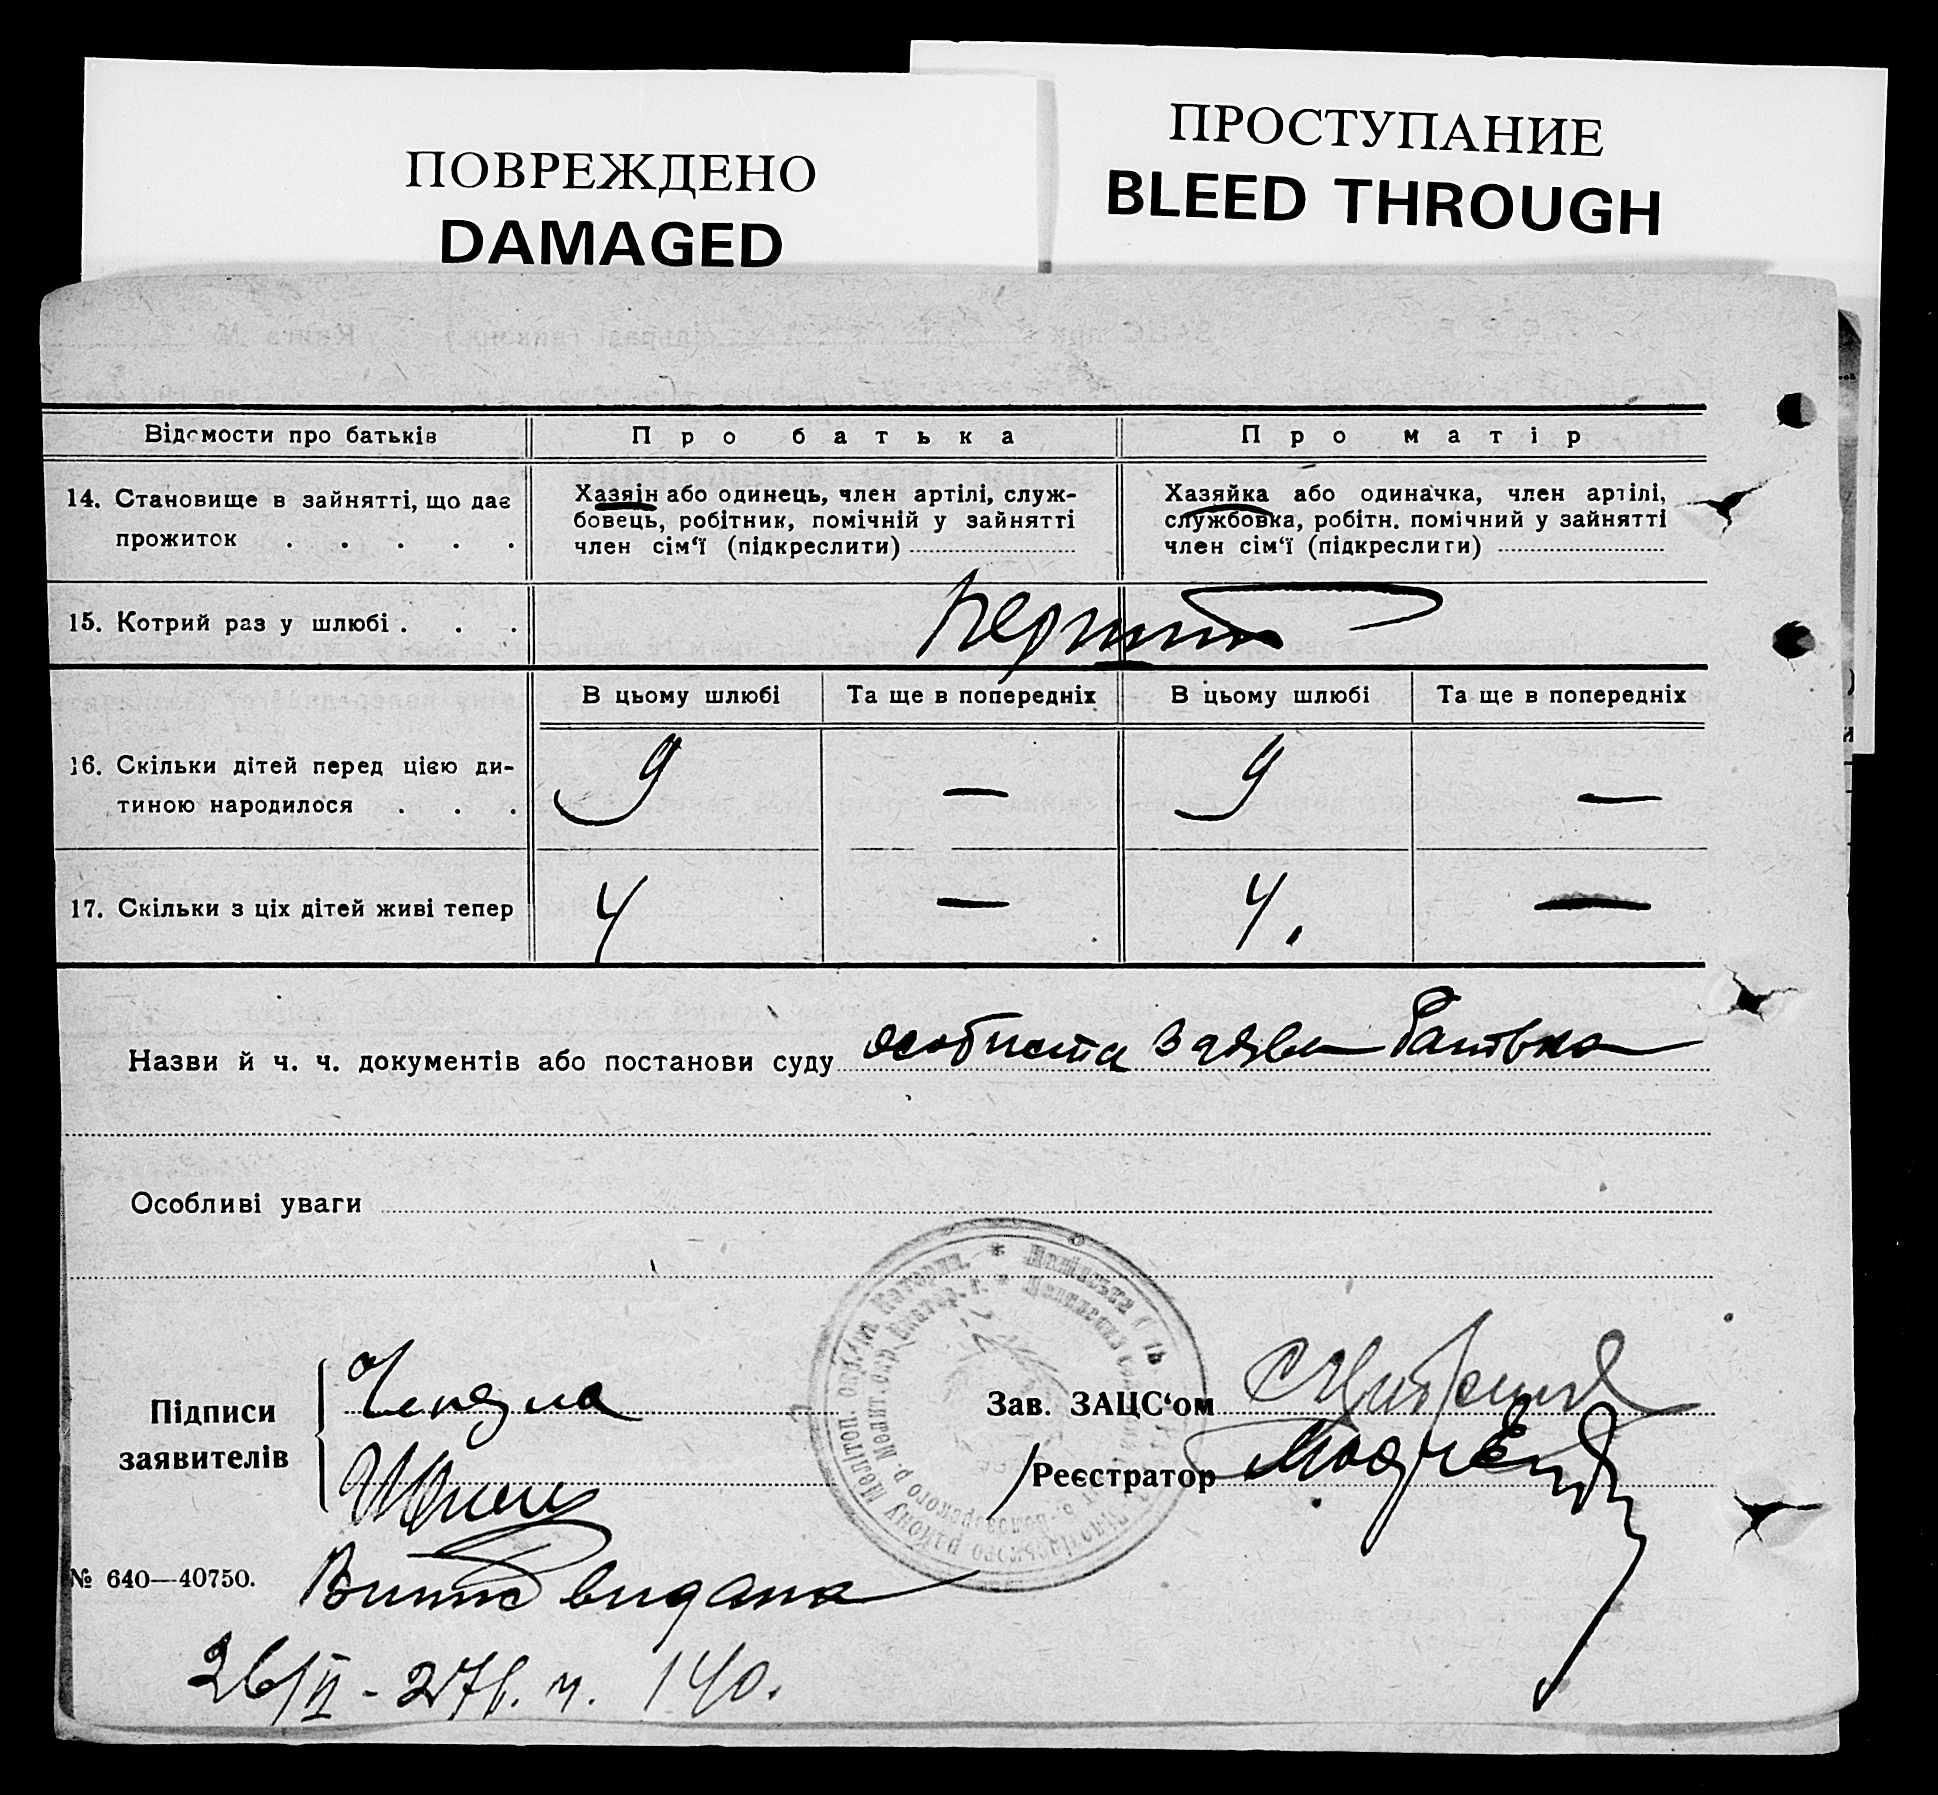 ПОВРЕЖДЕНО
DAMAGED
ПРОСТУПАНИЕ
BLEED THROUGH
Відомости про батьків
Про батька
Про матір
14. Становище в зайнятті, що дає
прожиток . . . . .
Хазяїн або одинець, член артілі, служ-
бовець, робітник, помічній у зайнятті
член сім‘ї (підкреслити)
Хазяйка або одиначка, член артілі,
службовка, робітн. помічний у зайнятті
член сім‘ї (підкреслити)
15. Котрий раз у шлюбі . . .
перший
В цьому шлюбі
Та ще в попередніх
В цьому шлюбі
Та ще в попередніх
16. Скільки дітей перед цією ди-
тиною народилося . . .
9
—
9
—
17. Скільки з ціх дітей живі тепер
4
—
4.
—
Назви й ч. ч. документів або постанови суду особиста заява батька
Особливі уваги
Підписи
заявителів
Зав. ЗАЦС‘ом
Реєстратор
№ 640—40750.
видана
26/II - 27 р. ч. 140.